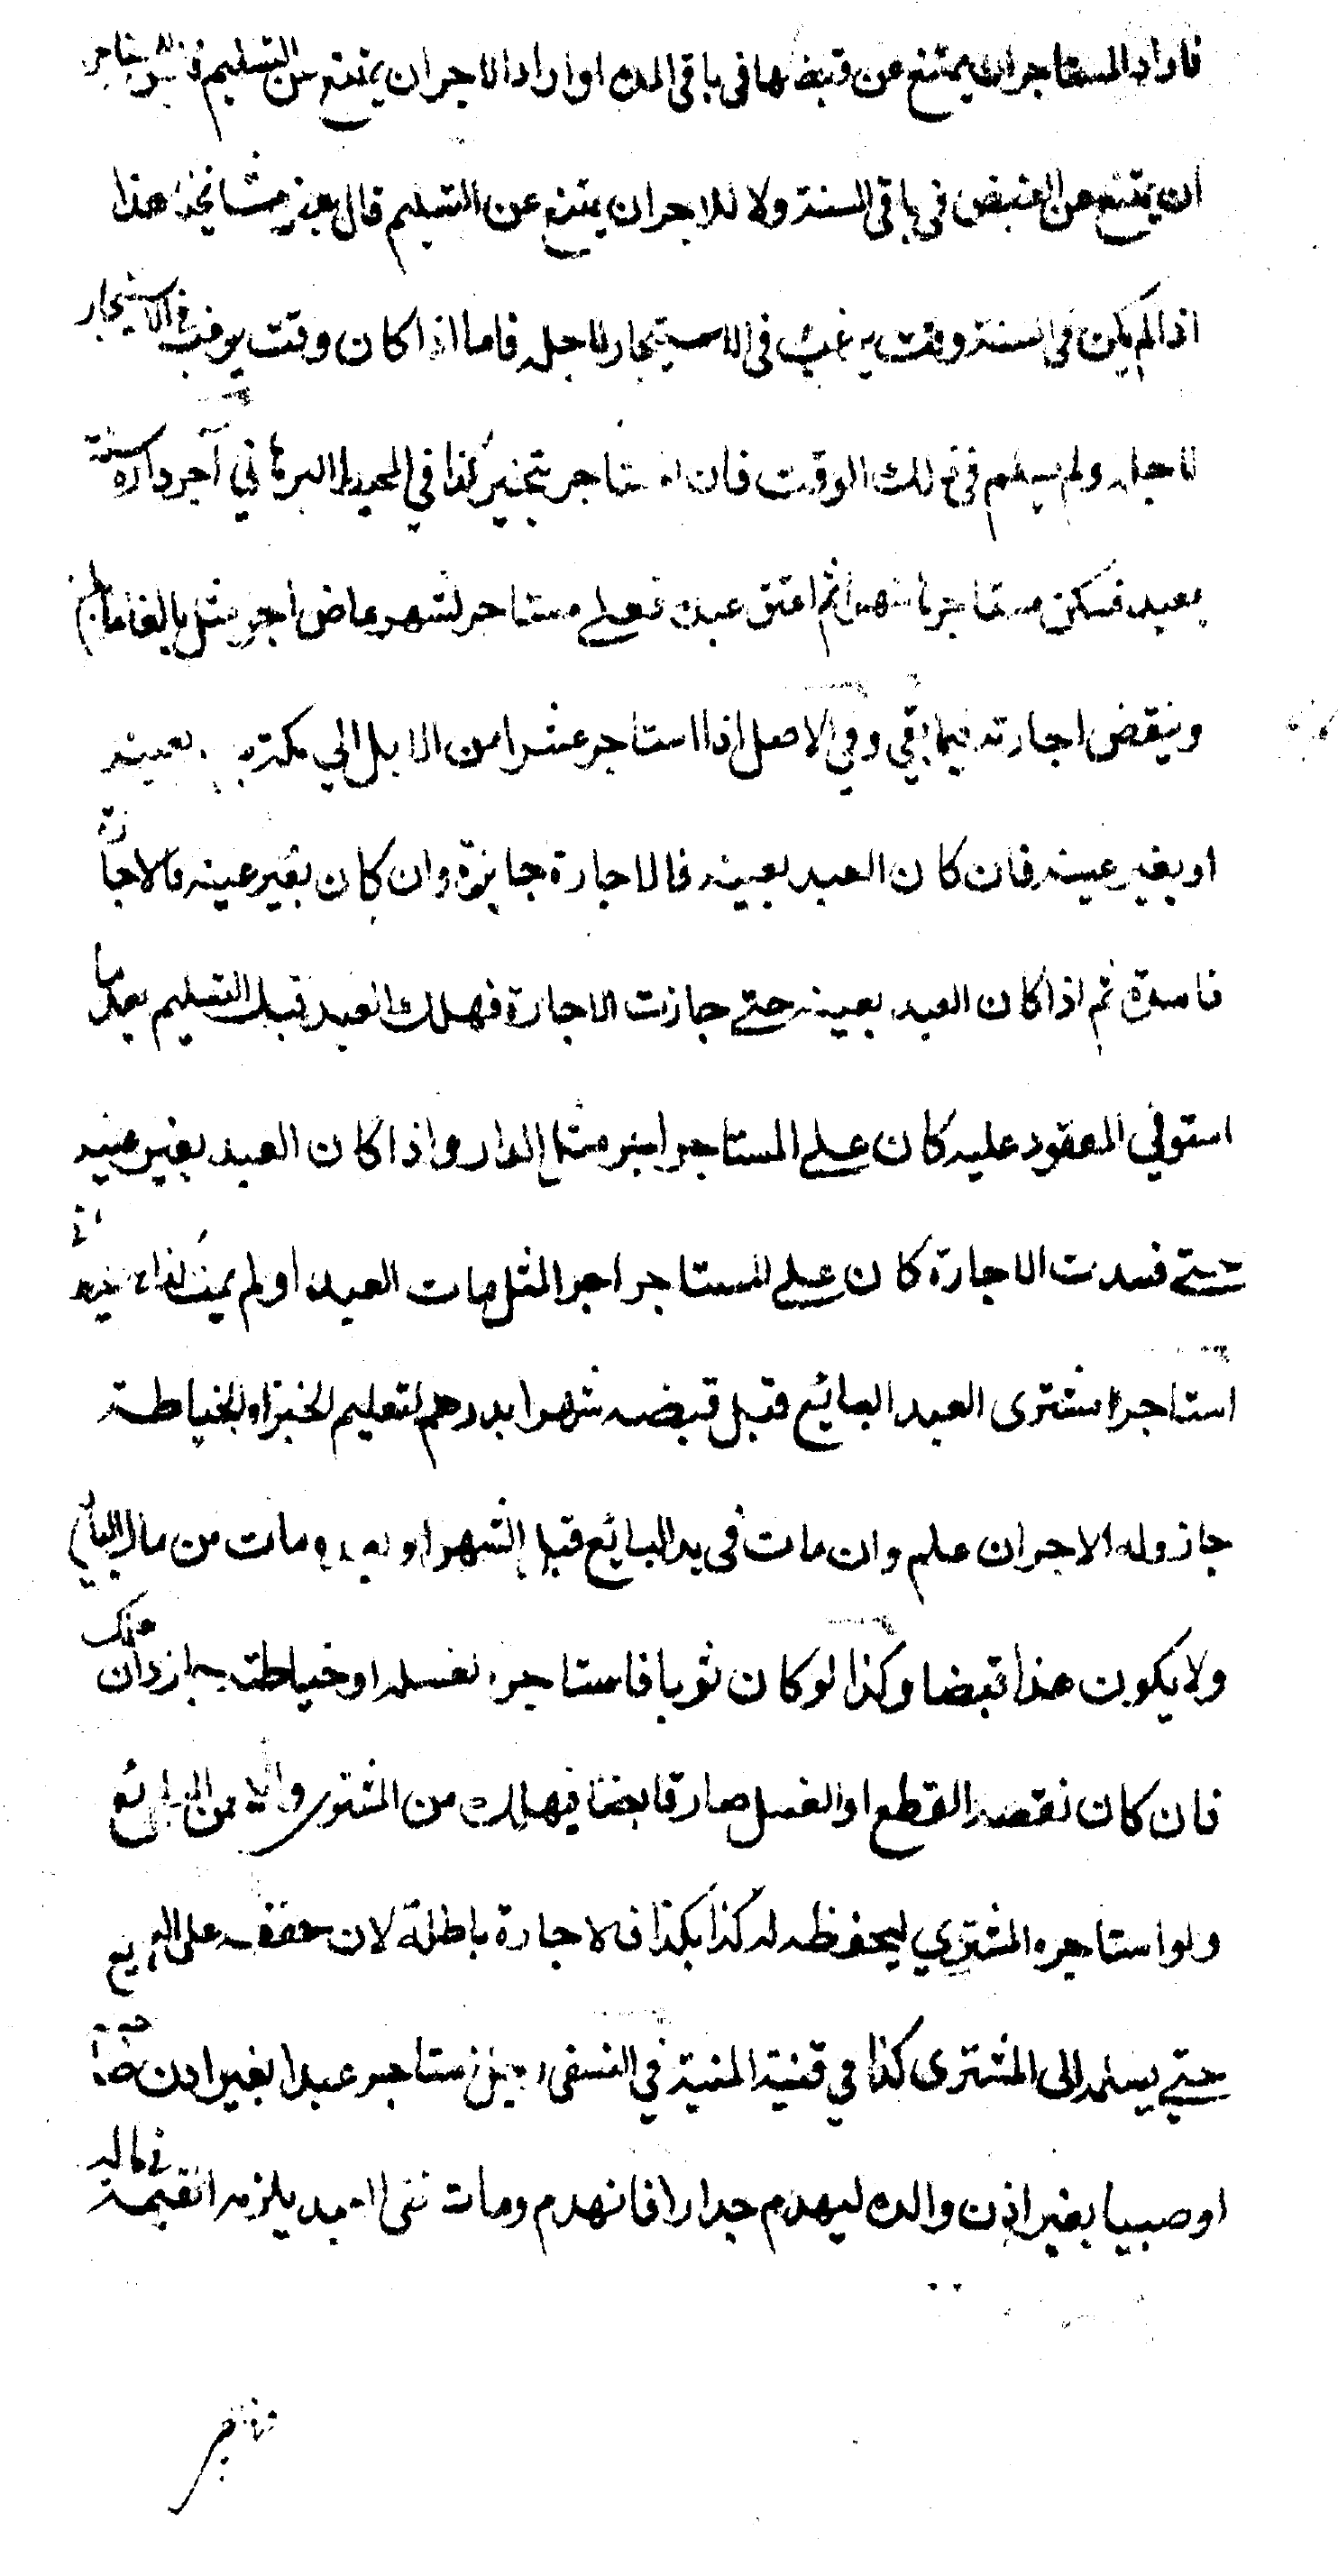 فاراد المستاجر ان يمتنع عن قبضها فى باقى المدة او اراد الاجر ان يمتنع عن التسليم فليس للمستاجر
ان يمتنع عن القبض فى باقى السنة ولا للاجر ان يمتنع عن التسليم قال بعض مشايخنا هذا
اذا لم يكن فى السنة وقت يرغب فى الاستيجار لاجله فاما اذا كان وقت يرغب فى الاستيجار
لاجله ولم يسلم فى ذلك الوقت فان المستاجر يتخير كذا في المحيط البرهاني آجر داره سنة
بعبد فسكن مستاجرها شهرا ثم اعتق عبده فعلى مستاجر لشهر ماض اجر مثل بالغا ما بلغ
وينقض اجارته فيما بقي وفي الاصل اذا استاجر عشرا من الابل الي مكة بعبد بعينه
او بغير عينه فان كان العبد بعينه فالاجارة جايزة وان كان بغير عينه فالاجارة
فاسدة ثم اذا كان العبد بعينه حتى جازت الاجارة فهلك العبد قبل التسليم بعد ما
استوفي المعقود عليه كان على المستاجر اجر مثل الدار واذا كان العبد بغير عينه
حتى فسدت الاجارة كان على المستاجر اجر المثل مات العبد او لم يمت كذا فى الذخيرة
استاجر اشترى العبد البايع قبل قبضه شهرا بدرهم لتعليم الخبز او الخياطة
جاز وله الاجر ان علم وان مات فى يد البايع قبل الشهر او بعده مات من مال البايع
ولا يكون هذا قبضا وكذا لو كان ثوبا فاستاجره لغسله او خياطته جاز وان هلك
فان كان نقصه القطع او الغسل صار قابضا فيهلك من المشترى والا من البايع
ولو استاجره المشتري ليحفظه له كذا بكذا فالاجارة باطلة لان حفظه على البايع
حتى يسلمه الى المشترى كذا في قنية المنية في النسفى استاجر عبدا بغير اذن صاحبه
او صبيا بغير اذن والده ليهدم جدارا فانهدم ومات ففى العبد يلزمه القيمة فى ماله